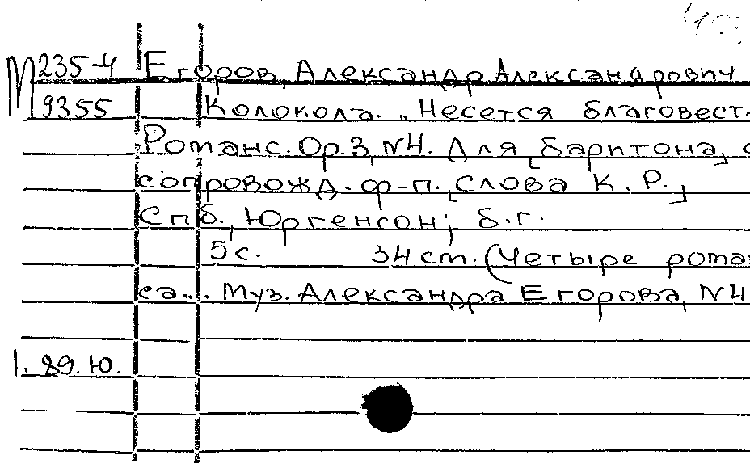 М 235-4 Егоров, Александр Александрович
9355 Колоколъ. „Несется благовест..
Романс. Op. 3, N4. Для [баритона] с
сопровожд. ф-п. [Слова К. Р.]
Спб., Юргенсон, б.г.
5 с. 34 cm. (Четыре роман
са... Муз. Александра Егорова, N4
1. 89. Ю.